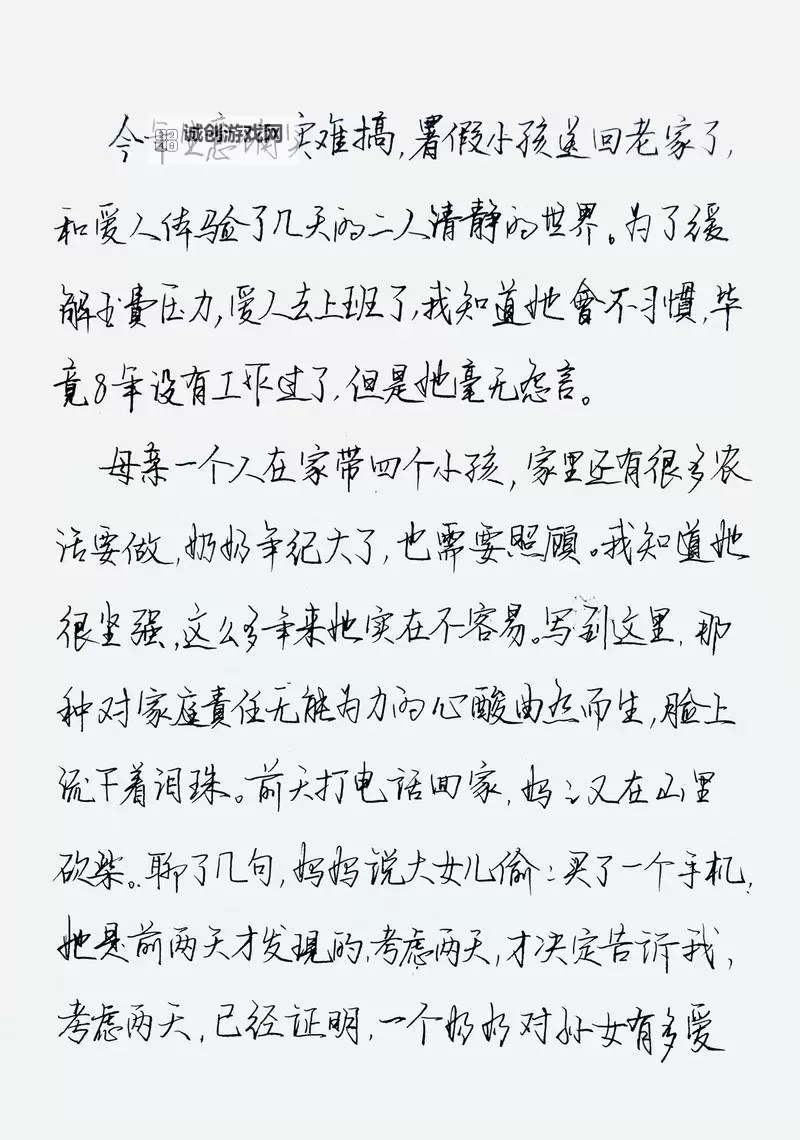 诚创游戏网
今年生意确实难搞,暑假小孩送回老家了,
和爱人体验了几天的二人清静的世界。为了缓
解生費压力,爱人去上班了,我知道她會不习慣,毕
竟8年没有工作过了,但是她毫无怨言。
母亲一个人在家带四个小孩,家里还有很多农
活要做,奶奶年纪大了,也需要照顧。我知道她
很坚强,这么多年来她实在不容易。写到这里,那
种对家庭責任无能为力的心酸由然而生,脸上
流下着泪珠。前天打电话回家,妈:又在山里
砍柴。聊了几句,妈妈说大女儿偷:买了一个手机,
她是前两天才发現的,考虑两天,才决定告诉我,
考虑两天,已经证明,一个奶奶对孙女有多爱